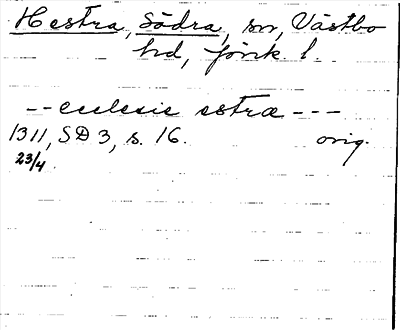 Hestra, Södra, sn, Västbo
hd, Jönk l.
-- ecclesie estræ ---
1311, SD 3, s. 16. orig.
23/4